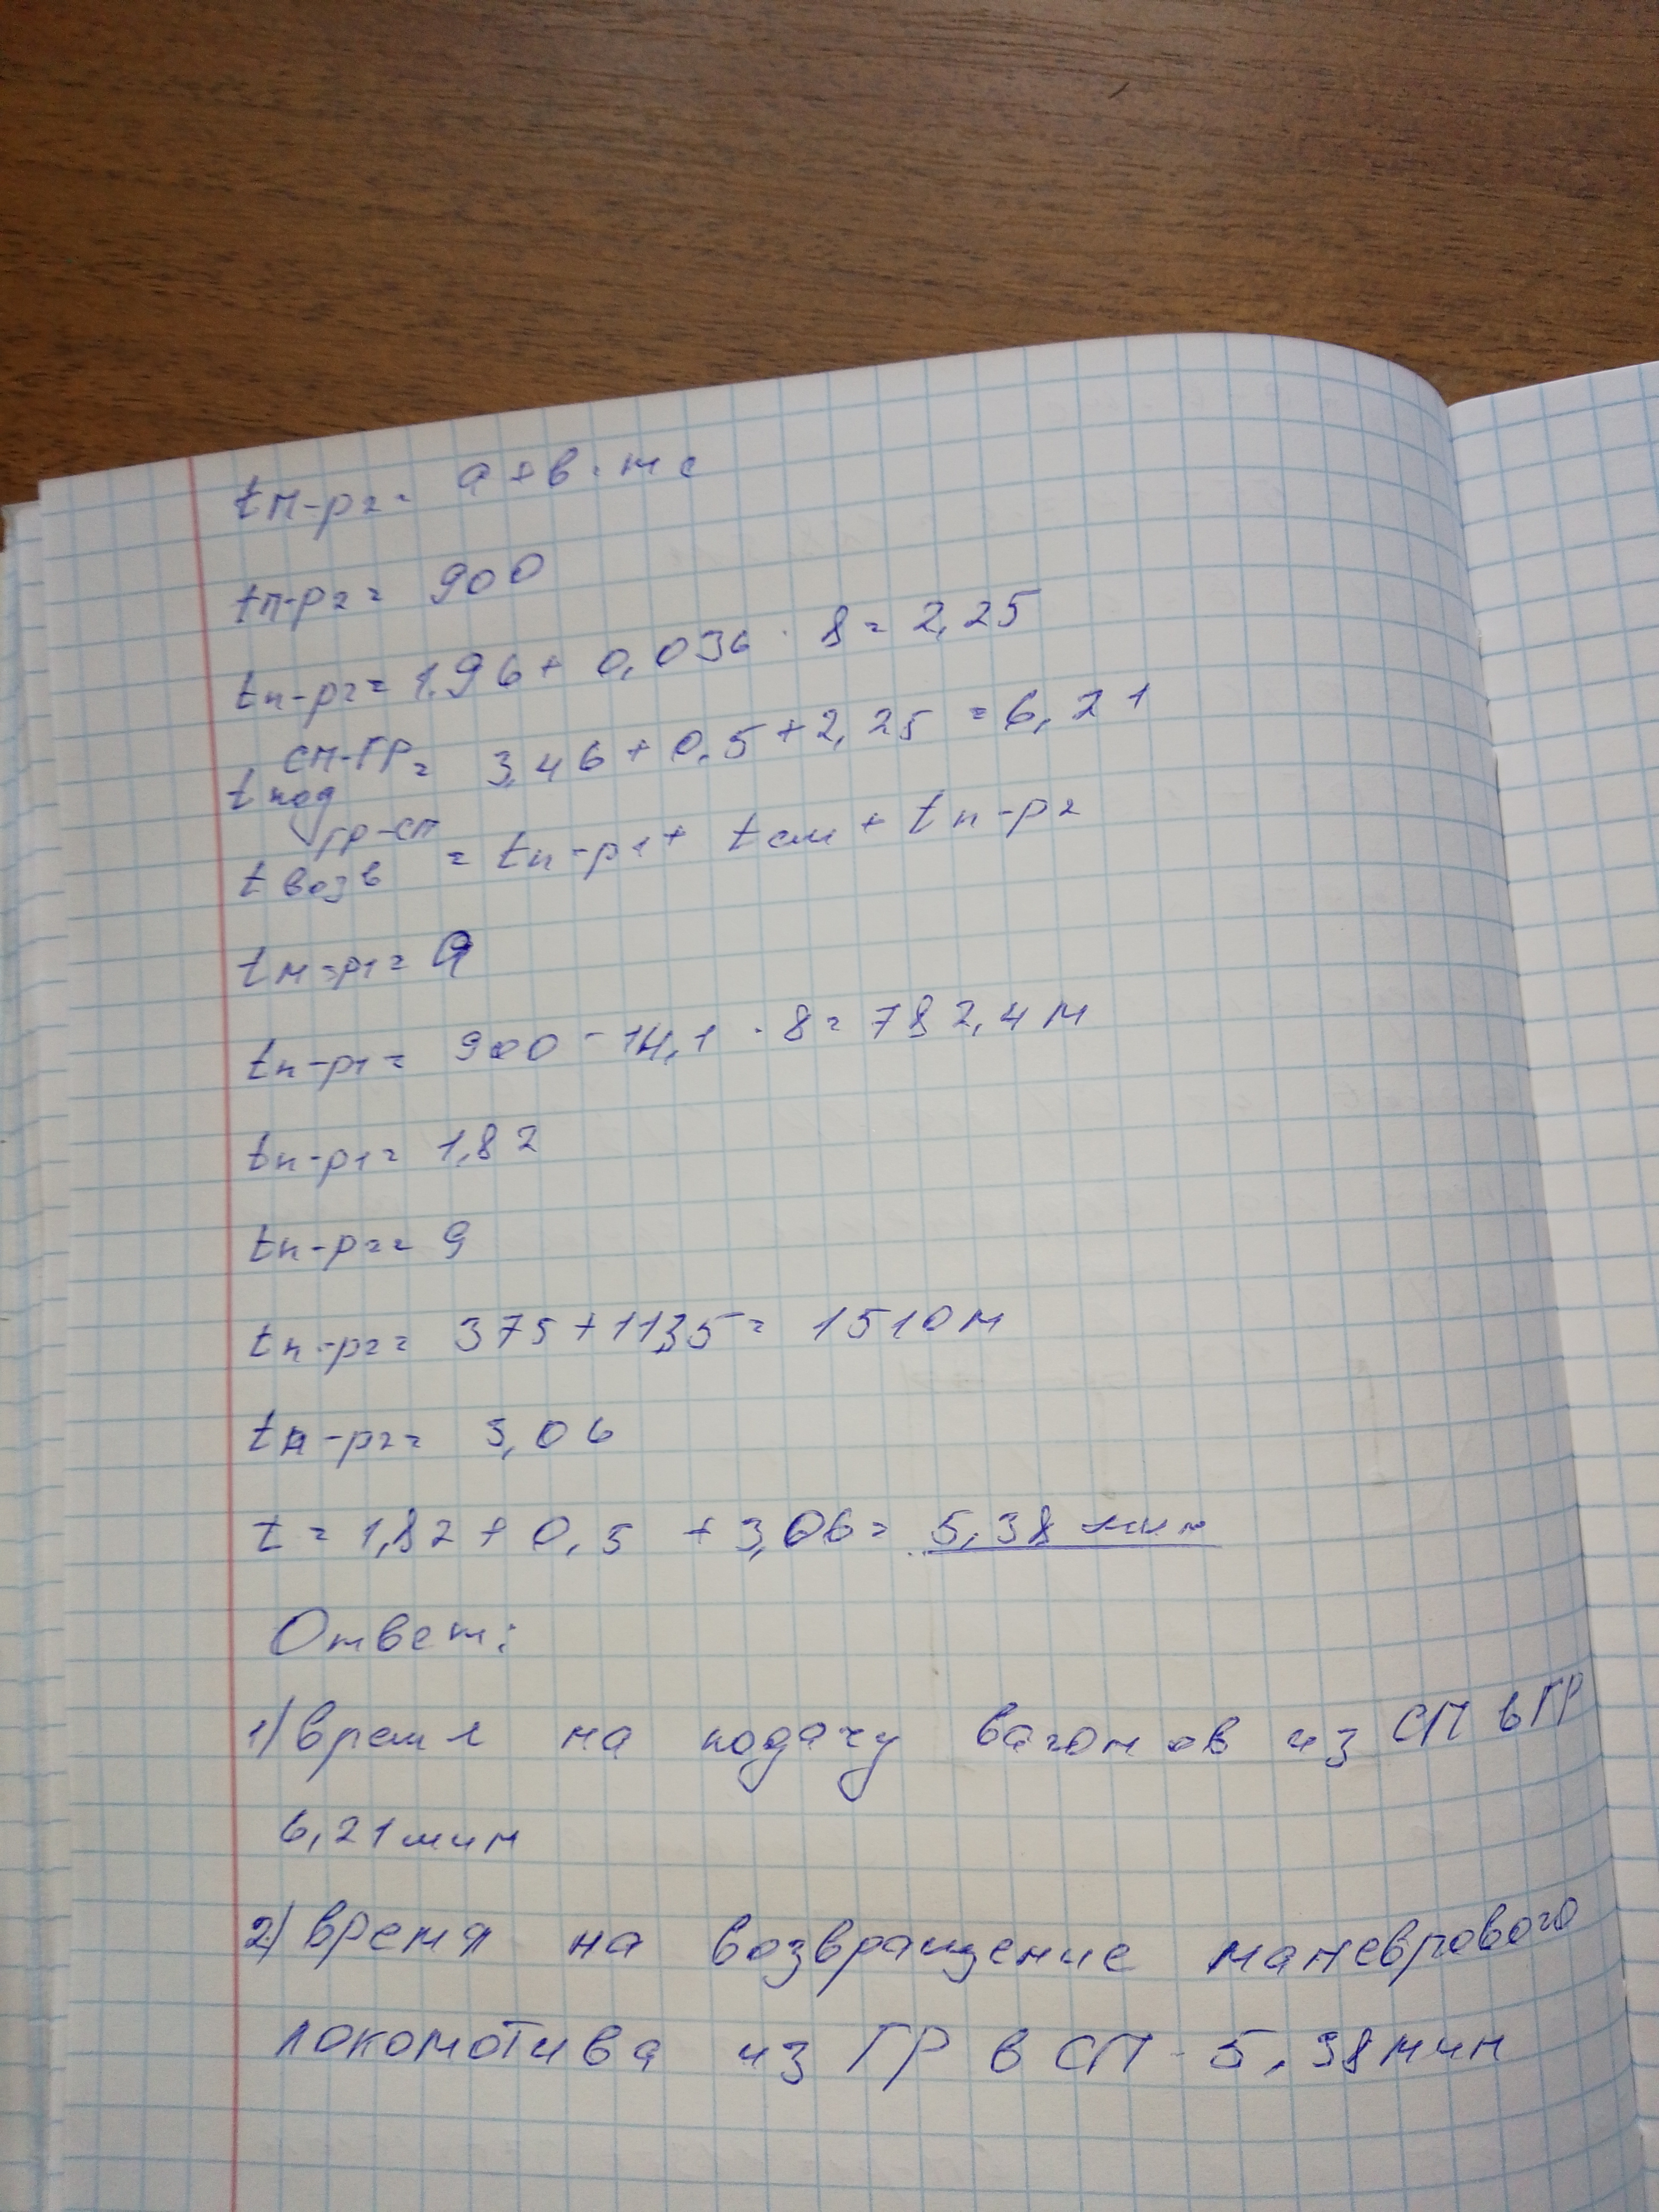 tп-р2 = a + в · mc
tп-р2 = 900
tп-р2 = 1.96 + 0,036 · 8 = 2,25
t под СП-ГР = 3,46 + 0,5 + 2,25 = 6,21
t возв ГР-СП = tп-р1 + tсм + tп-р2
tп-р1 = a
tп-р1 = 900 - 14,1 · 8 = 782,4 м
tп-р1 = 1,82
tп-р2 = 9
tп-р2 = 375 + 1135 = 1510 м
tп-р2 = 3,06
t = 1,82 + 0,5 + 3,06 = 5,38 мин
Ответ:
1) время на подачу вагонов из СП в ГР
6,21 мин
2) время на возвращение маневрового
локомотива из ГР в СП - 5,38 мин